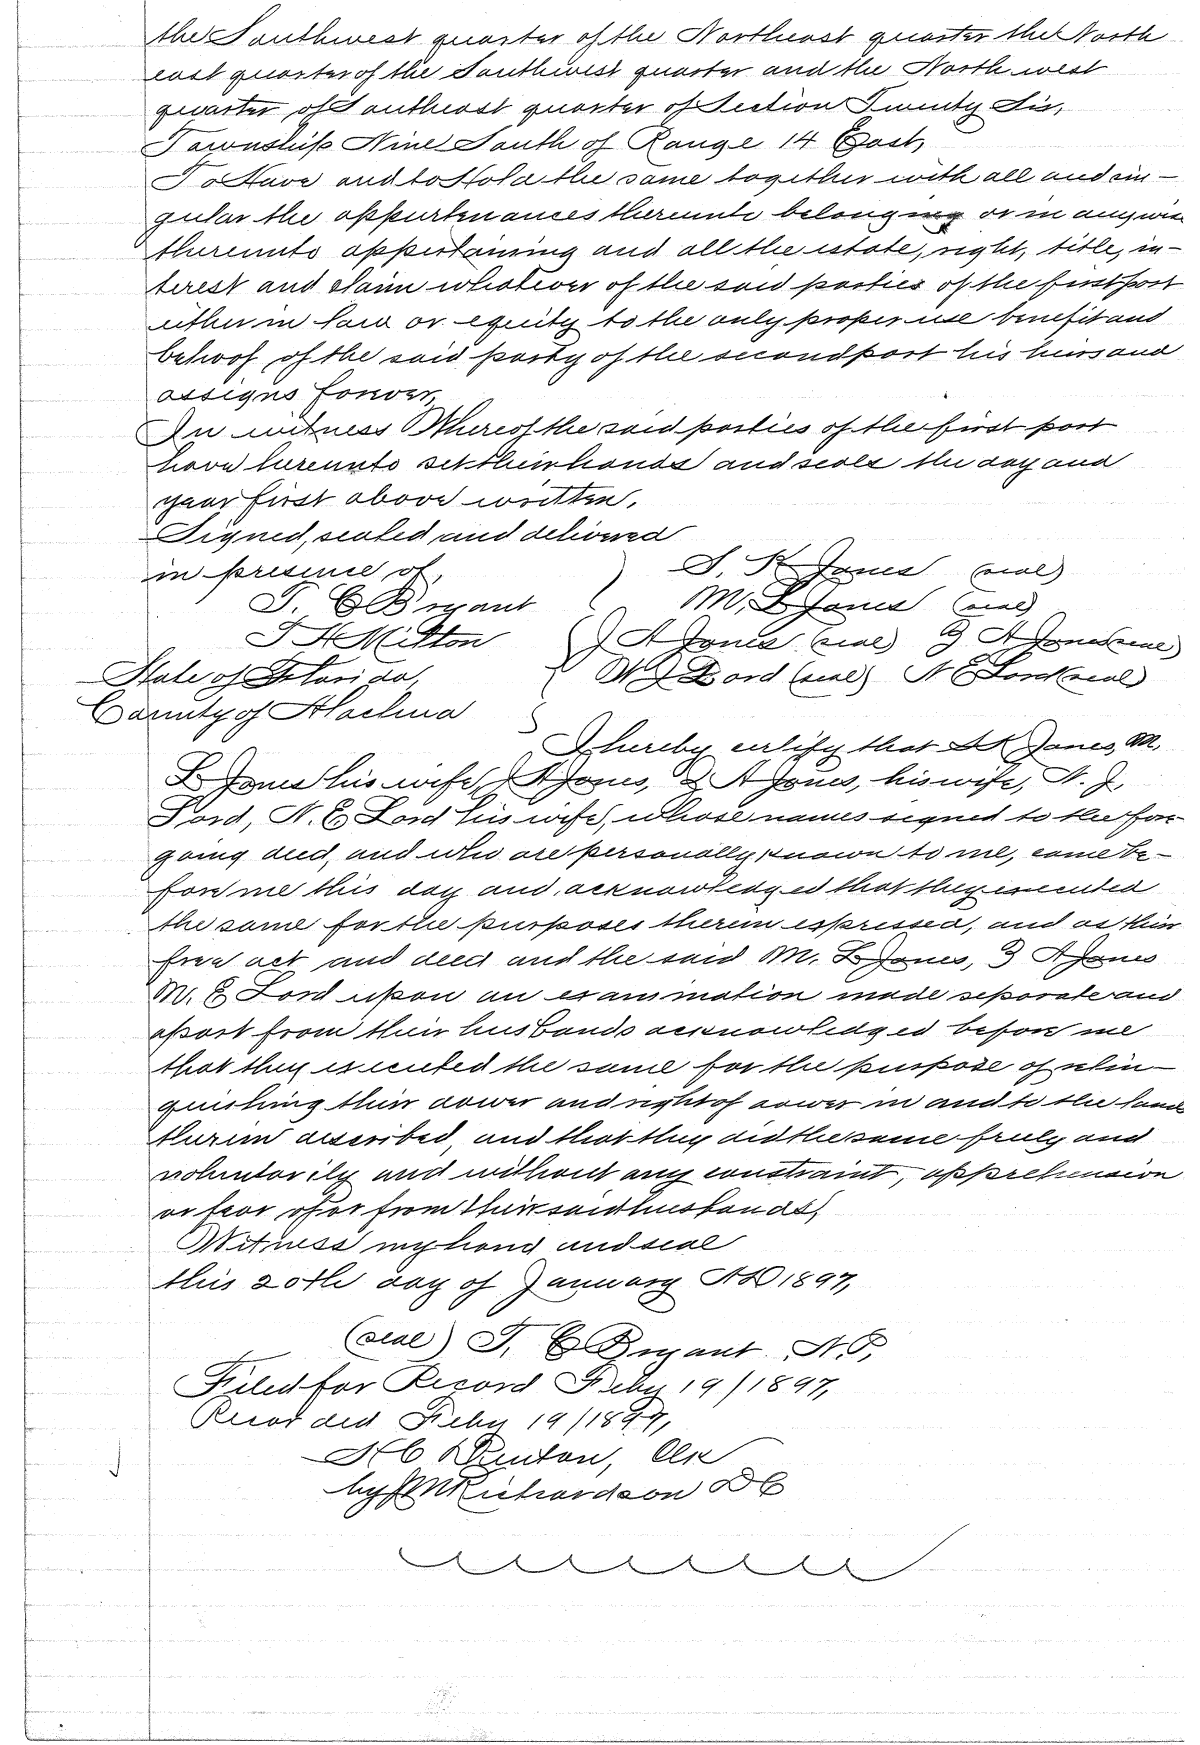 the Southwest quarter of the Northeast quarter the North
east quarter of the Southwest quarter and the North west
quarter of Southeast quarter of Section Twenty Six,
Township Nine South of Range 14 East,
To Have and to Hold the same together with all and sin-
gular the appurtenances thereunto belonging or in anywise
thereunto appertaining and all the estate, right, title, in-
terest and claim whatever of the said parties of the first part
either in law or equity to the only proper use benefit and
behoof of the said party of the second part his heirs and
assigns forever,
In witness Whereof the said parties of the first part
have hereunto set their hands and seals the day and
year first above written.
Signed, sealed and delivered
in presence of, S. K Jones (seal)
T. C Bryant M, L Jones (seal)
T H Milton J A Jones (seal) A Jones (seal)
State of Florida, W J Lord (seal) N E Lord (seal)
County of Alachua
I hereby certify that S K Jones, M.
L Jones his wife, J A Jones, A Jones, his wife, N. J,
Lord, N. E Lord his wife, whose names signed to the fore
going deed, and who are personally known to me, came be-
fore me this day and acknowledged that they executed
the same for the purposes therein expressed, and as their
free act and deed and the said M. L Jones, A Jones
M. E Lord upon an examination made separate and
apart from their husbands acknowledged before me
that they executed the same for the purpose of relin-
quishing their dower and right of dower in and to the land
therein described, and that they did the same freely and
voluntarily and without any constraint, apprehension
or fear of or from their said husbands,
Witness my hand and seal
this 20th day of January AD 1897,
(seal) T. C Bryant N. P,
Filed for Record Feby 19/1897,
Recorded Feby 19/1897,
H C Denton, Clk
by Richardson D C